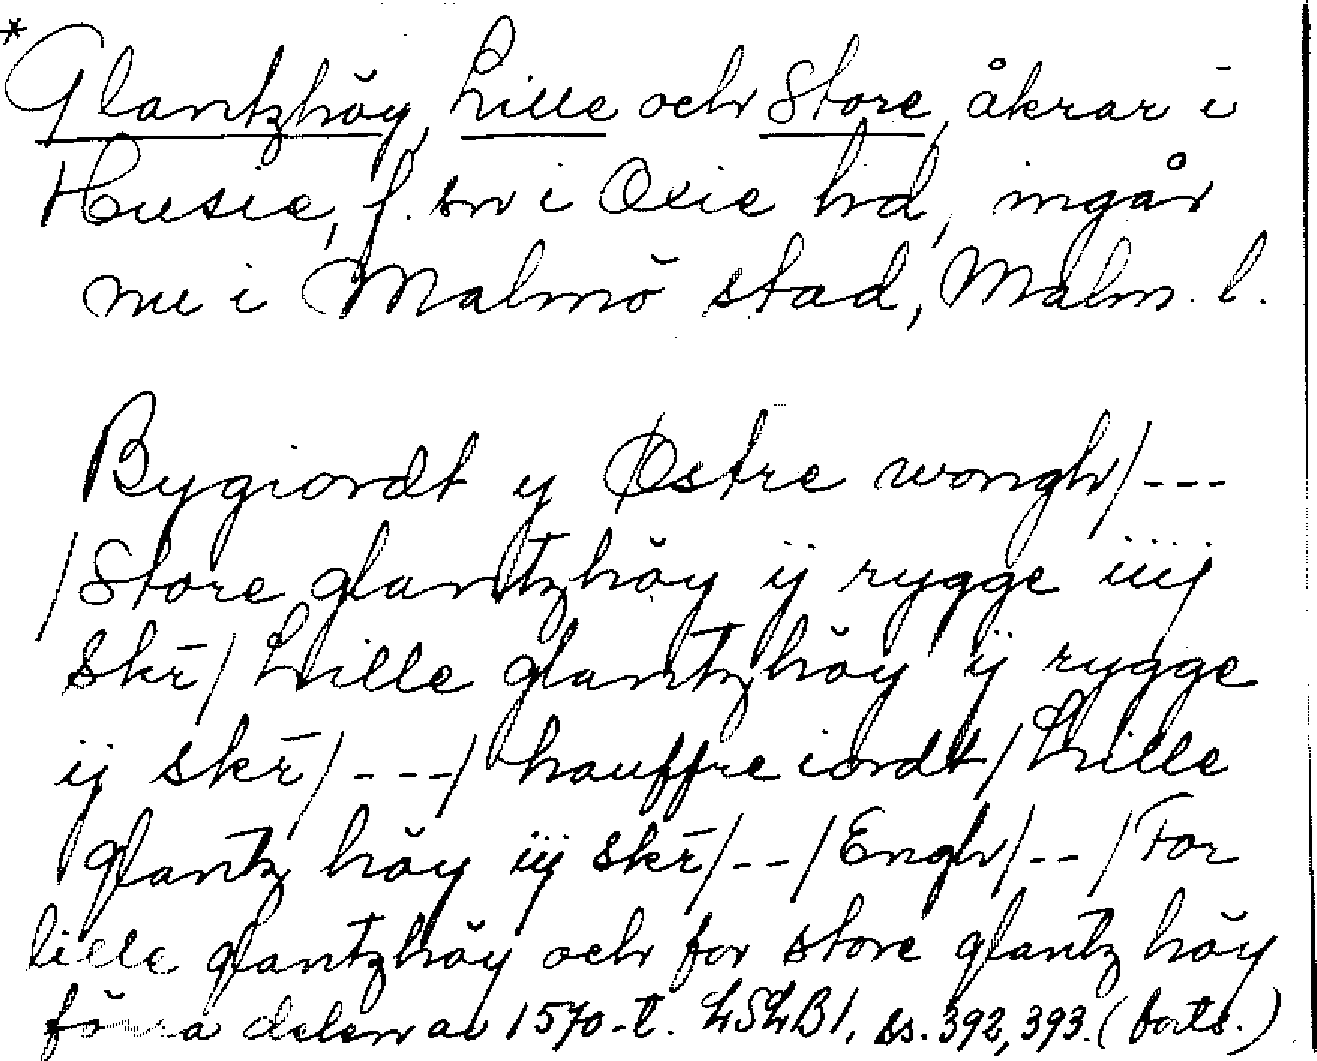 *Glantzhöy, Lille och Store, åkrar i
Husie, f. sn i Oxie hd, ingår
nu i Malmö stad, Malm. l.
Bygiordt y Østre wongh/---
/Store glantzhöy ij rygge iiij
skr̄/Lille glantzhöy ij rygge
ij skr̄/---/hauffre iordt/Lille
glantz höy iij skr̄/--/Engh/--/For
lille glantzhöy och for store glantz höy
förra delen av 1570-t. LSLB1. ss. 392, 393. (forts.)